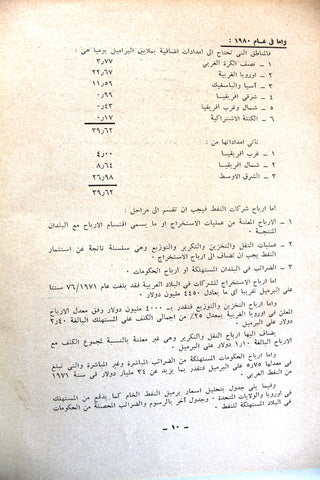 واما في عام ١٩٨٠ :
فالمناطق التي تحتاج الى امدادات اضافية بملايين البراميل يوميا هي :
١ – نصف الكرة الغربي ٣٫٧٧
٢ – اوروبا الغربية ٢٢٫٦٧
٣ – آسيا والباسفيك ١١٫٥٩
٤ – شرقي افريقيا ٠٫٩٩
٥ – شمال وغرب افريقيا ٠٫٤٣
٦ – الكتلة الاشتراكية ٠٫١٧
٣٩٫٦٢
تأتي امداداتها من :
١ – غرب افريقيا ٤٫٠٠
٢ – شمال افريقيا ٨٫٦٤
٣ – الشرق الاوسط ٢٦٫٩٨
٣٩٫٦٢
اما ارباح شركات النفط فيجب ان تقسم الى مراحل :
١ – الارباح المعلنة من عمليات الاستخراج او ما يسمى اقتسام الارباح مع البلدان
المنتجة .
٢ – عمليات النقل والتخزين والتكرير والتوزيع وهي سلسلة ناتجة عن استثمار
النفط يجب ان تضاف الى ارباح الاستخراج .
٣ – الضرائب في البلدان المستهلكة او ارباح الحكومات .
اما ارباح الاستخراج للشركات في البلاد العربية فقد بلغت عام ١٩٧١/ ٧٦ سنتا
للبرميل تقريبا اي ما يعادل ٤٤٥٠ مليون دولار .
واما ارباح التخزين والتوزيع فتقدر بـ ٤٠٠٠ مليون دولار وفق معدل الارباح
المعلن في اوروبا الغربية بمعدل ٢٥٪ من اجمالي الكلف على المستهلك البالغة ٢٫٤٠
دولار على البرميل .
يضاف اليها ارباح النقل والتكرير وهي غير معلنة بالنسبة لمجموع الكلف مع
الارباح البالغة ١٫١٠ دولار على البرميل .
واما ارباح الحكومات المستهلكة من الضرائب المباشرة وغير المباشرة والتي تبلغ
في معدلها ٥٫٧٥ على البرميل فتقدر بما يزيد عن ٣٤ مليار دولار في سنة ١٩٧١
من النفط العربي .
وفيما يلي جدول بتحليل اسعار برميل النفط الخام كما يدفع من المستهلك
في اوروبا والولايات المتحدة . وجدول آخر بالرسوم والضرائب المحصلة من الحكومات
في البلاد المستهلكة للنفط .
– ١٠ –